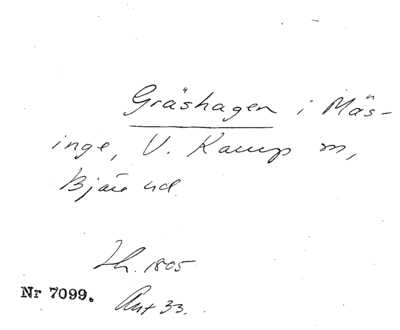 Gräshagen i Mäs-
inge, V. Karup sn,
Bjäre hd.
Lh. 1805
Nr 7099. Akt 33.